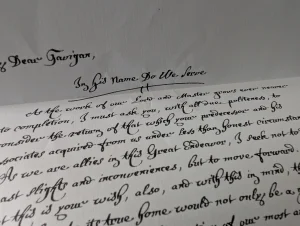 y Dear Tarrigan,
In his Name Do We Serve
As the work of our Lord and Master grows ever nearer
to completion, I must ask you, with all due politeness, to
consider the return of that which your predecessor and his
associates acquired from us under less than honest circumstances
As we are allies in this Great Endeavor, I seek not to
past slights and inconveniences, but to move forward.
at this is your wish, also, and with this in mind, th
its true home would not only be a
of our most a